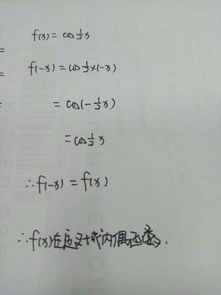 f(x) = cos½x
=
f(-x) = cos½×(-x)
=
= cos(-½x)
= cos½x
∴f(-x) = f(x)
∴f(x)在定义域内偶函数.